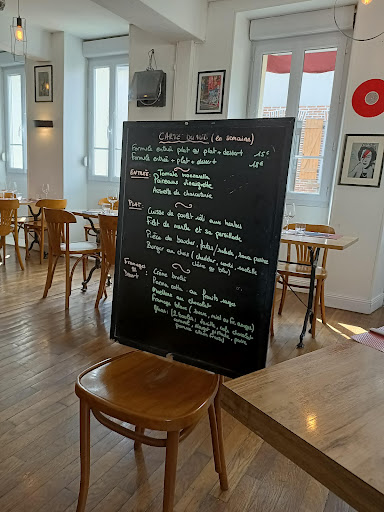 CARTE DU MIDI (en semaine)
Formule entrée plat ou plat + dessert 15€
Formule entrée + plat + dessert 18€
ENTRÉE
Tomate mozzarella
Poireaux vinaigrette
Assiette de charcuterie
PLAT
Cuisse de poulet rôti aux herbes
Filet de merlu et sa persillade
Pièce du boucher, frites/salade, sauce poivre
Burger au choix (cheddar, monts, raclette
chèvre ou bleu)
Fromages et
Dessert
Crème brulée
Panna cotta aux fruits rouges
Moelleux au chocolat
Fromage blanc (sucre, miel ou fr. rouges)
Glaces: (2 boules) vanille, café, chocolat